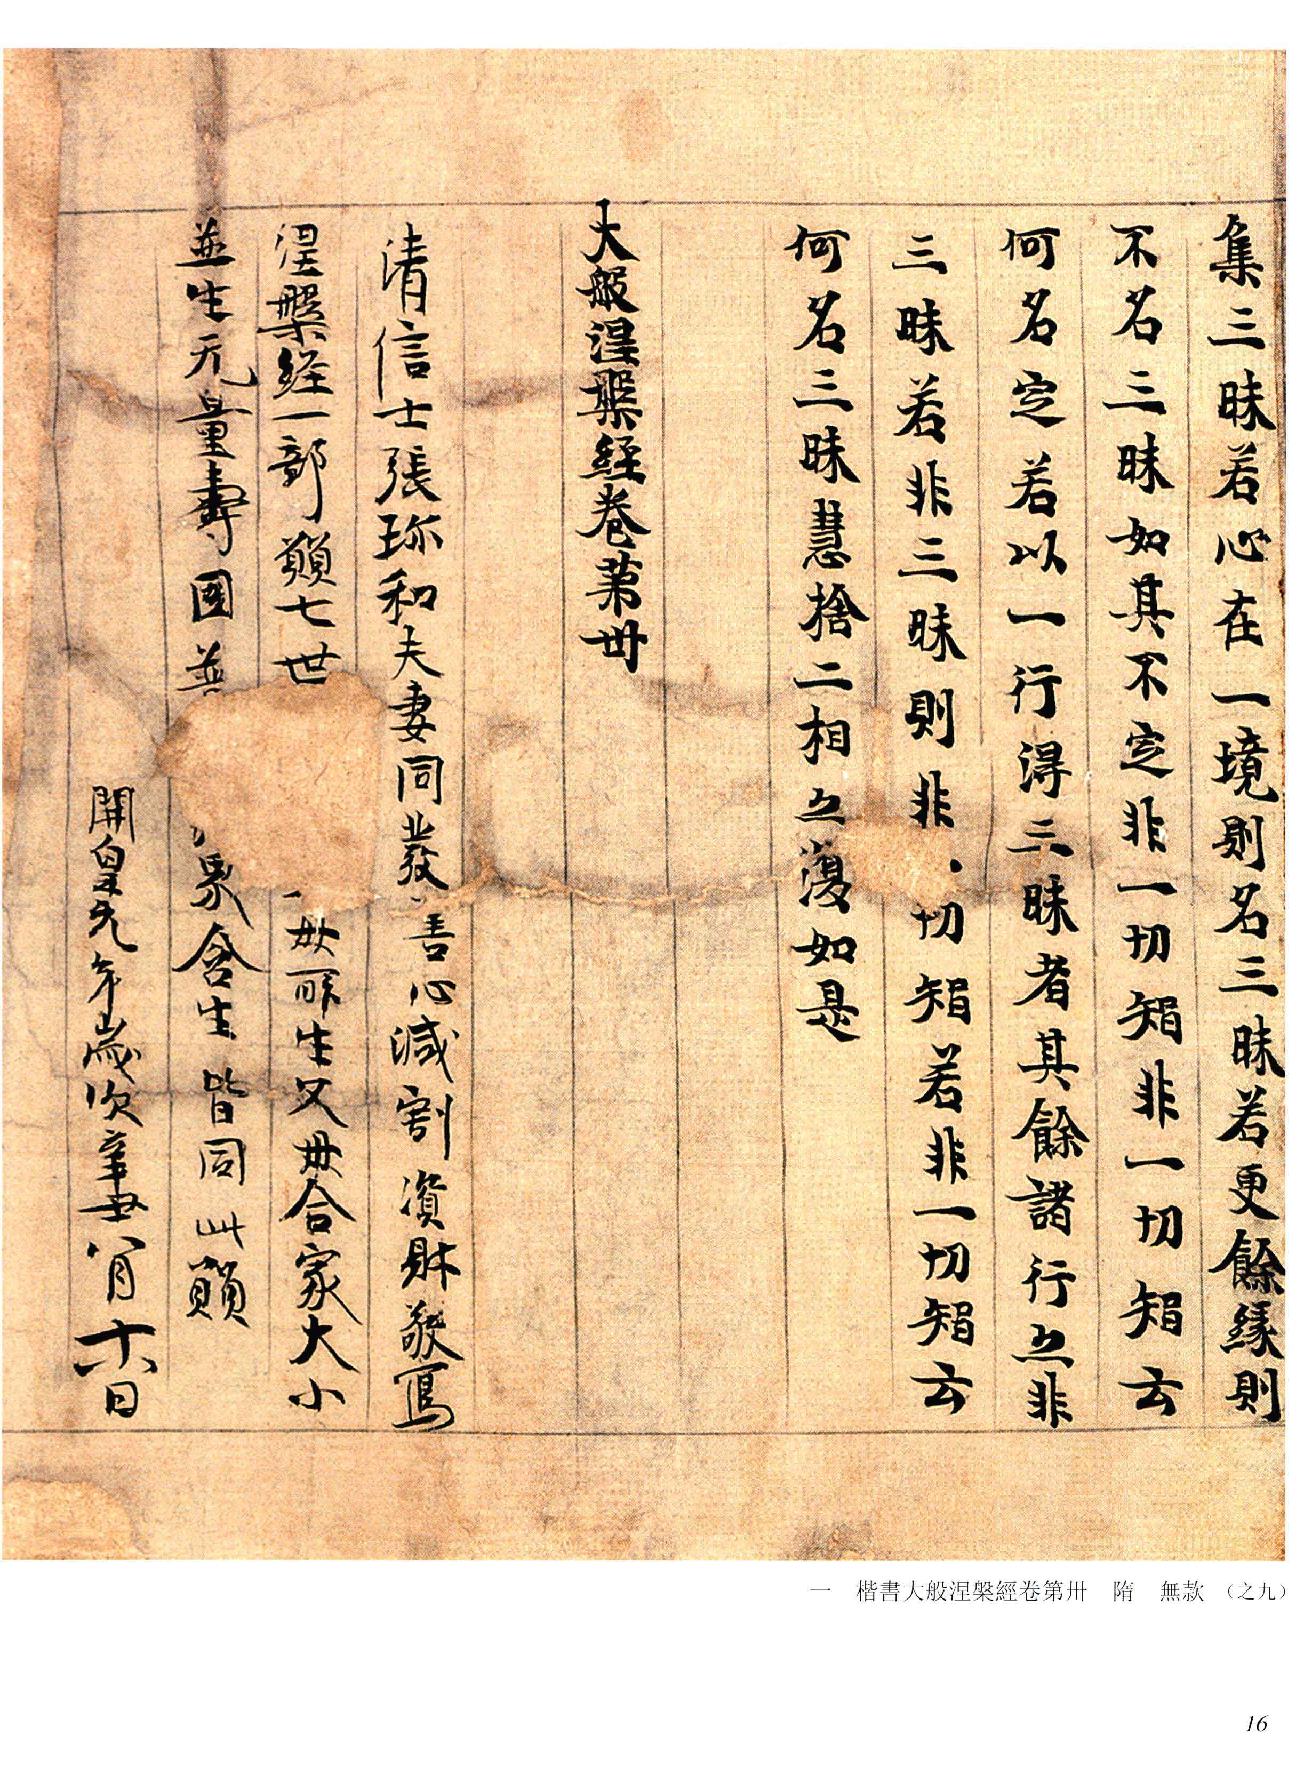 集三昧若心在一境則名三昧若更餘緣則
不名三昧如其不定非一切智非一切智云
何名定若以一行得三昧者其餘諸行亦非
三昧若非三昧則非一切智若非一切智云
何名三昧慧捨二相亦復如是
大般涅槃經卷第卌
清信士張珎和夫妻同發善心減割資財敬寫
涅槃經一部願七世 母所生父母合家大小
並生无量壽國普 含生皆同此願
開皇元年歲次辛丑八月十六日
一 楷書大般涅槃經卷第卌 隋 無款 （之九）
16